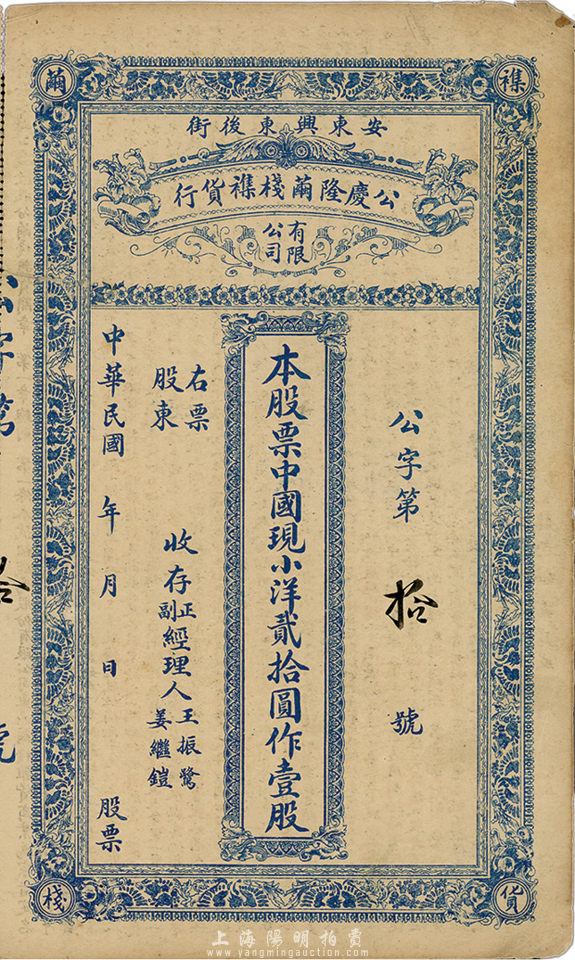 繭
襍
安東興東後街
公慶隆繭棧襍貨行
有限
公司
公字第拾號
本股票中國現小洋貳拾圓作壹股
右票
股東
收存
正副經理人
王振鷺
姜繼鎧
中華民國 年 月 日 股票
棧
貨
公字第
拾
號
上海陽明拍賣
www.yangmingauction.com